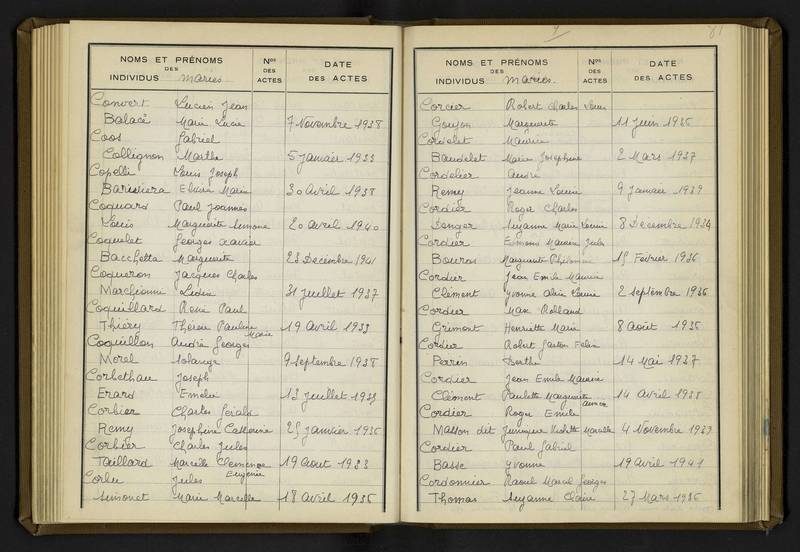 NOMS ET PRÉNOMS
DES
INDIVIDUS Mariés.
Nos
DES
ACTES
DATE
DES ACTES
Convert Lucien Jean
Balacé Marie Lucie 7 Novembre 1938
Coos Gabriel
Collignon Martha 5 Janvier 1933
Copelli Louis Joseph
Barisiera Elvire Marie 30 Avril 1938
Coquard Paul Joannes
Louis Marguerite Simone 20 Avril 1940
Coquelet Georges Xavier
Bacchetta Marguerite 23 Décembre 1941
Coqueron Jacques Charles
Marchionni Lidia 31 Juillet 1937
Coquillard René Paul
Thiéry Thérèse Pauline Marie 19 Avril 1933
Coquillon André Georges
Morel Solange 9 Septembre 1938
Corbethau Joseph
Erard Emelie 13 Juillet
Corbier Charles Gérald
Remy Joséphine Catherine 25 Janvier 1936
Corbier Charles Jules
Taillard Marcelle Clémence Eugénie 19 Août 1933
Corlu Jules
Simonet Marie Marcelle 18 Avril 1936
81
NOMS ET PRÉNOMS
DES
INDIVIDUS Mariés.
Nos
DES
ACTES
DATE
DES ACTES
Corcier Robert Charles Louis
Goujon Marguerite 11 Juin 1936
Cordelet Maurice
Baudelet Marie Joséphine 2 Mars 1937
Cordelier André
Remy Jeanne Laure 9 Janvier 1939
Cordier Roger Charles
Songer Suzanne Marie Louise 8 Décembre 1934
Cordier Edmond Maurice Jules
Bouron Marguerite Philomène 15 Février 1936
Cordier Jean Emile Maurice
Clément Yvonne Alice Laure 2 Septembre 1936
Cordier Max Rolland
Grimont Henriette Marie 8 Août 1936
Cordier Robert Gaston Félix
Perrin Berthe 14 Mai 1937
Cordier Jean Emile Maurice
Clément Paulette Marguerite 14 Avril 1938
Cordier Roger Emile
Masson dit Marcelle 4 Novembre 1939
Cordier Paul Gabriel
Basse Yvonne 19 Avril 1941
Cordonnier Raoul Marcel Georges
Thomas Suzanne Claire 27 Mars 1936